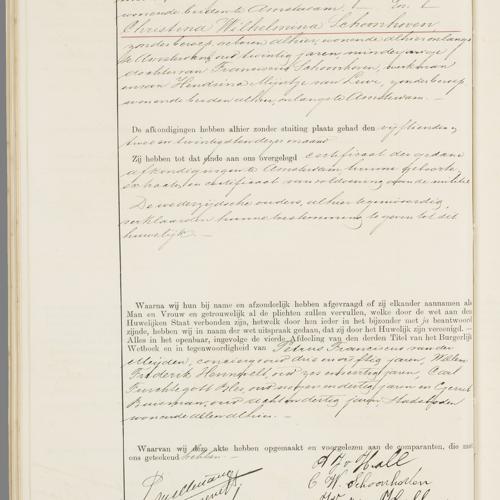 wonende beiden te Amsterdam. En
Christina Wilhelmina Schoonhoven
zonder beroep, geboren alhier, wonende alhier onlangs
te Amsterdam, oud twintig jaren, minderjarige
dochter van Franciscus Schoonhoven, werkman
en van Hendrina Mijntje van Luve, zonder beroep
wonende beiden alhier, onlangs te Amsterdam.
De afkondigingen hebben alhier zonder stuiting plaats gehad den vijftienden en
twee en twintigsten dezer maand
Zij hebben tot dat einde aan ons overgelegd certificaat der gedane
afkondigingen te Amsterdam hunne geboorte
extracten en certificaat van voldoening aan de militie
De wederzijdsche ouders, alhier tegenwoordig,
verklaarden hunne toestemming te geven tot dit
huwelijk.
Waarna wij hun bij name en afzonderlijk hebben afgevraagd of zij elkander aannemen als
Man en Vrouw en getrouwelijk al de plichten zullen vervullen, welke door de wet aan den
Huwelijken Staat verbonden zijn, hetwelk door hen ieder in het bijzonder met ja beantwoord
zijnde, hebben wij in naam der wet uitspraak gedaan, dat zij door het Huwelijk zijn vereenigd.
Alles in het openbaar, ingevolge de vierde Afdeeling van den derden Titel van het Burgerlijk
Wetboek en in tegenwoordigheid van Petrus Franciscus van der
Meijden, concierge oud drie en vijftig jaren, Willem
Frederik oud zes en veertig jaren, Carl
Bles, oud negen en dertig jaren en Gerrit
oud acht en dertig jaren Stadsboden
wonende allen alhier.
Waarvan wij deze akte hebben opgemaakt en voorgelezen aan de comparanten, die met
ons geteekend hebben.
C W. Schoonhoven